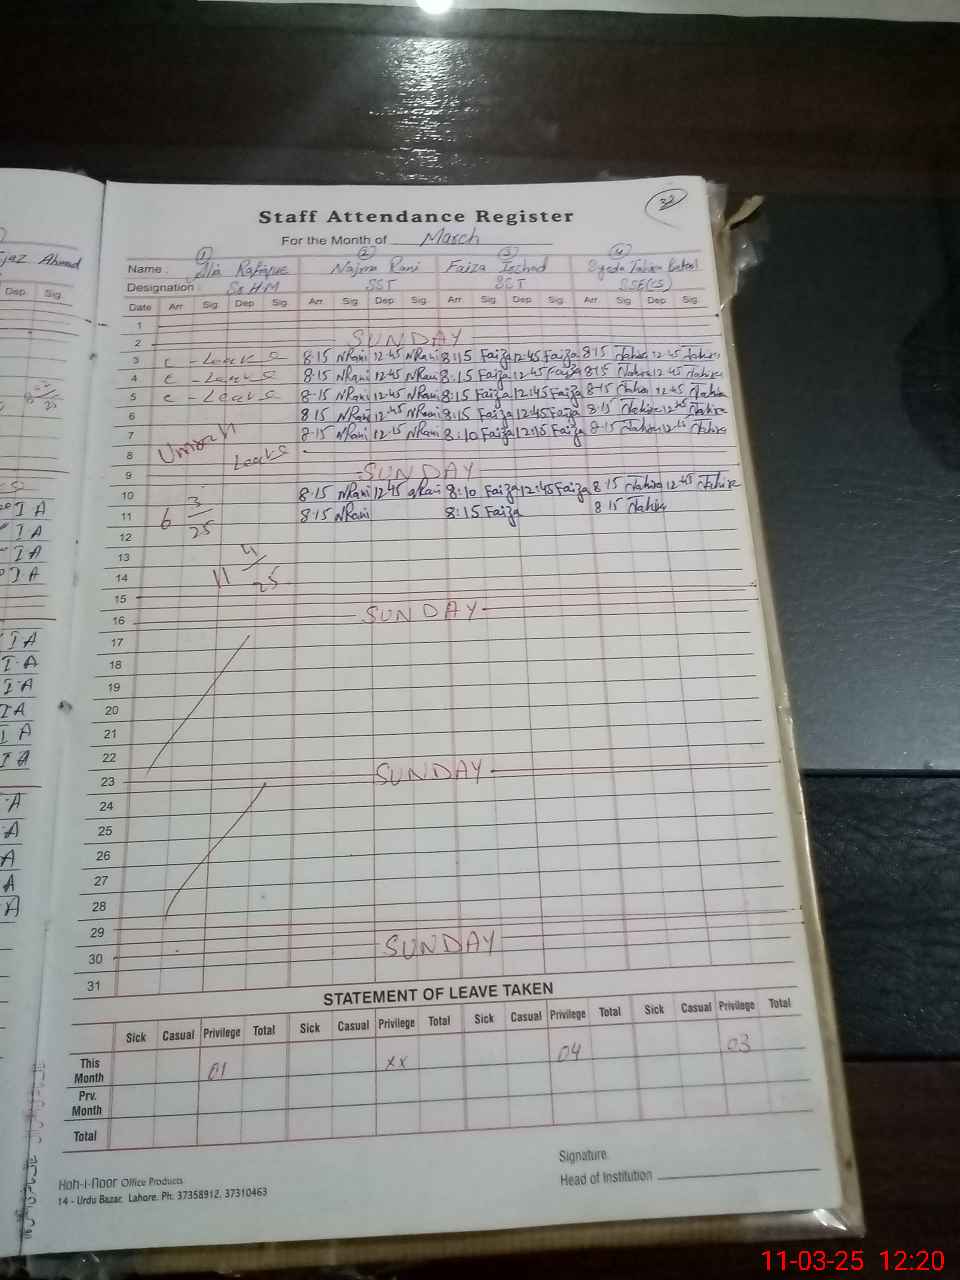 32
Staff Attendance Register
For the Month of March
1 2 3 4
Name : Rafique Najma Rani Faiza Irshad Syeda Tahira Batool
Designation : SSHM SST SST SSE(CS)
Date Arr Sig. Dep Sig. Arr Sig. Dep Sig. Arr Sig. Dep Sig. Arr Sig. Dep Sig.
1
2 SUNDAY
3 C - Leave 8·15 NRani 12·45 NRani 8:15 Faiza 12:45 Faiza 8·15 Tahira 12·45 Tahira
4 C - Leave 8·15 NRani 12·45 NRani 8:15 Faiza 12:45 Faiza 8·15 Tahira 12·45 Tahira
5 C - Leave 8·15 NRani 12·45 NRani 8:15 Faiza 12:45 Faiza 8·15 Tahira 12·45 Tahira
6 8·15 NRani 12·45 NRani 8:15 Faiza 12:45 Faiza 8·15 Tahira 12·45 Tahira
7 Umrah 8·15 NRani 12·15 NRani 8:10 Faiza 12:15 Faiza 8·15 Tahira 12·15 Tahira
8 Leave
9 SUNDAY
10 8·15 NRani 12·45 NRani 8:10 Faiza 12:45 Faiza 8·15 Tahira 12·45 Tahira
11 6 3/25 8·15 NRani 8:15 Faiza 8·15 Tahira
12
13
14 11 4/25
15
16 SUNDAY
17
18
19
20
21
22
23 SUNDAY
24
25
26
27
28
29
30 SUNDAY
31
STATEMENT OF LEAVE TAKEN
Sick Casual Privilege Total Sick Casual Privilege Total Sick Casual Privilege Total Sick Casual Privilege Total
This Month 01 xx 04 03
Prv. Month
Total
Signature
Head of Institution
Hoh-i-Noor Office Products
14 - Urdu Bazar, Lahore. Ph. 37358912, 37310463
Ahmad
Dep. Sig.
I A
I A
I A
I A
I A
I A
I A
I A
I A
I A
A
A
A
A
A
11-03-25 12:20